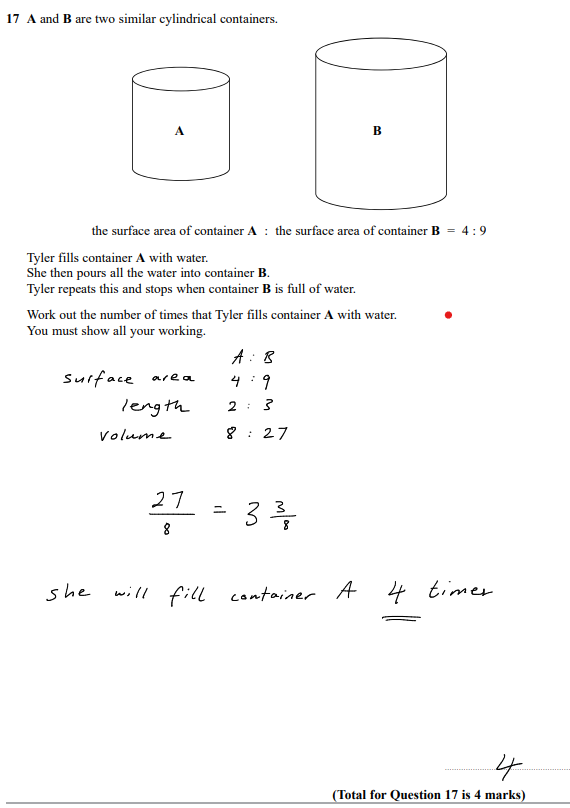 17 A and B are two similar cylindrical containers.
A
B
the surface area of container A : the surface area of container B = 4 : 9
Tyler fills container A with water.
She then pours all the water into container B.
Tyler repeats this and stops when container B is full of water.
Work out the number of times that Tyler fills container A with water.
You must show all your working.
A : B
surface area 4 : 9
length 2 : 3
volume 8 : 27
27/8 = 3 3/8
she will fill container A 4 times
4
(Total for Question 17 is 4 marks)